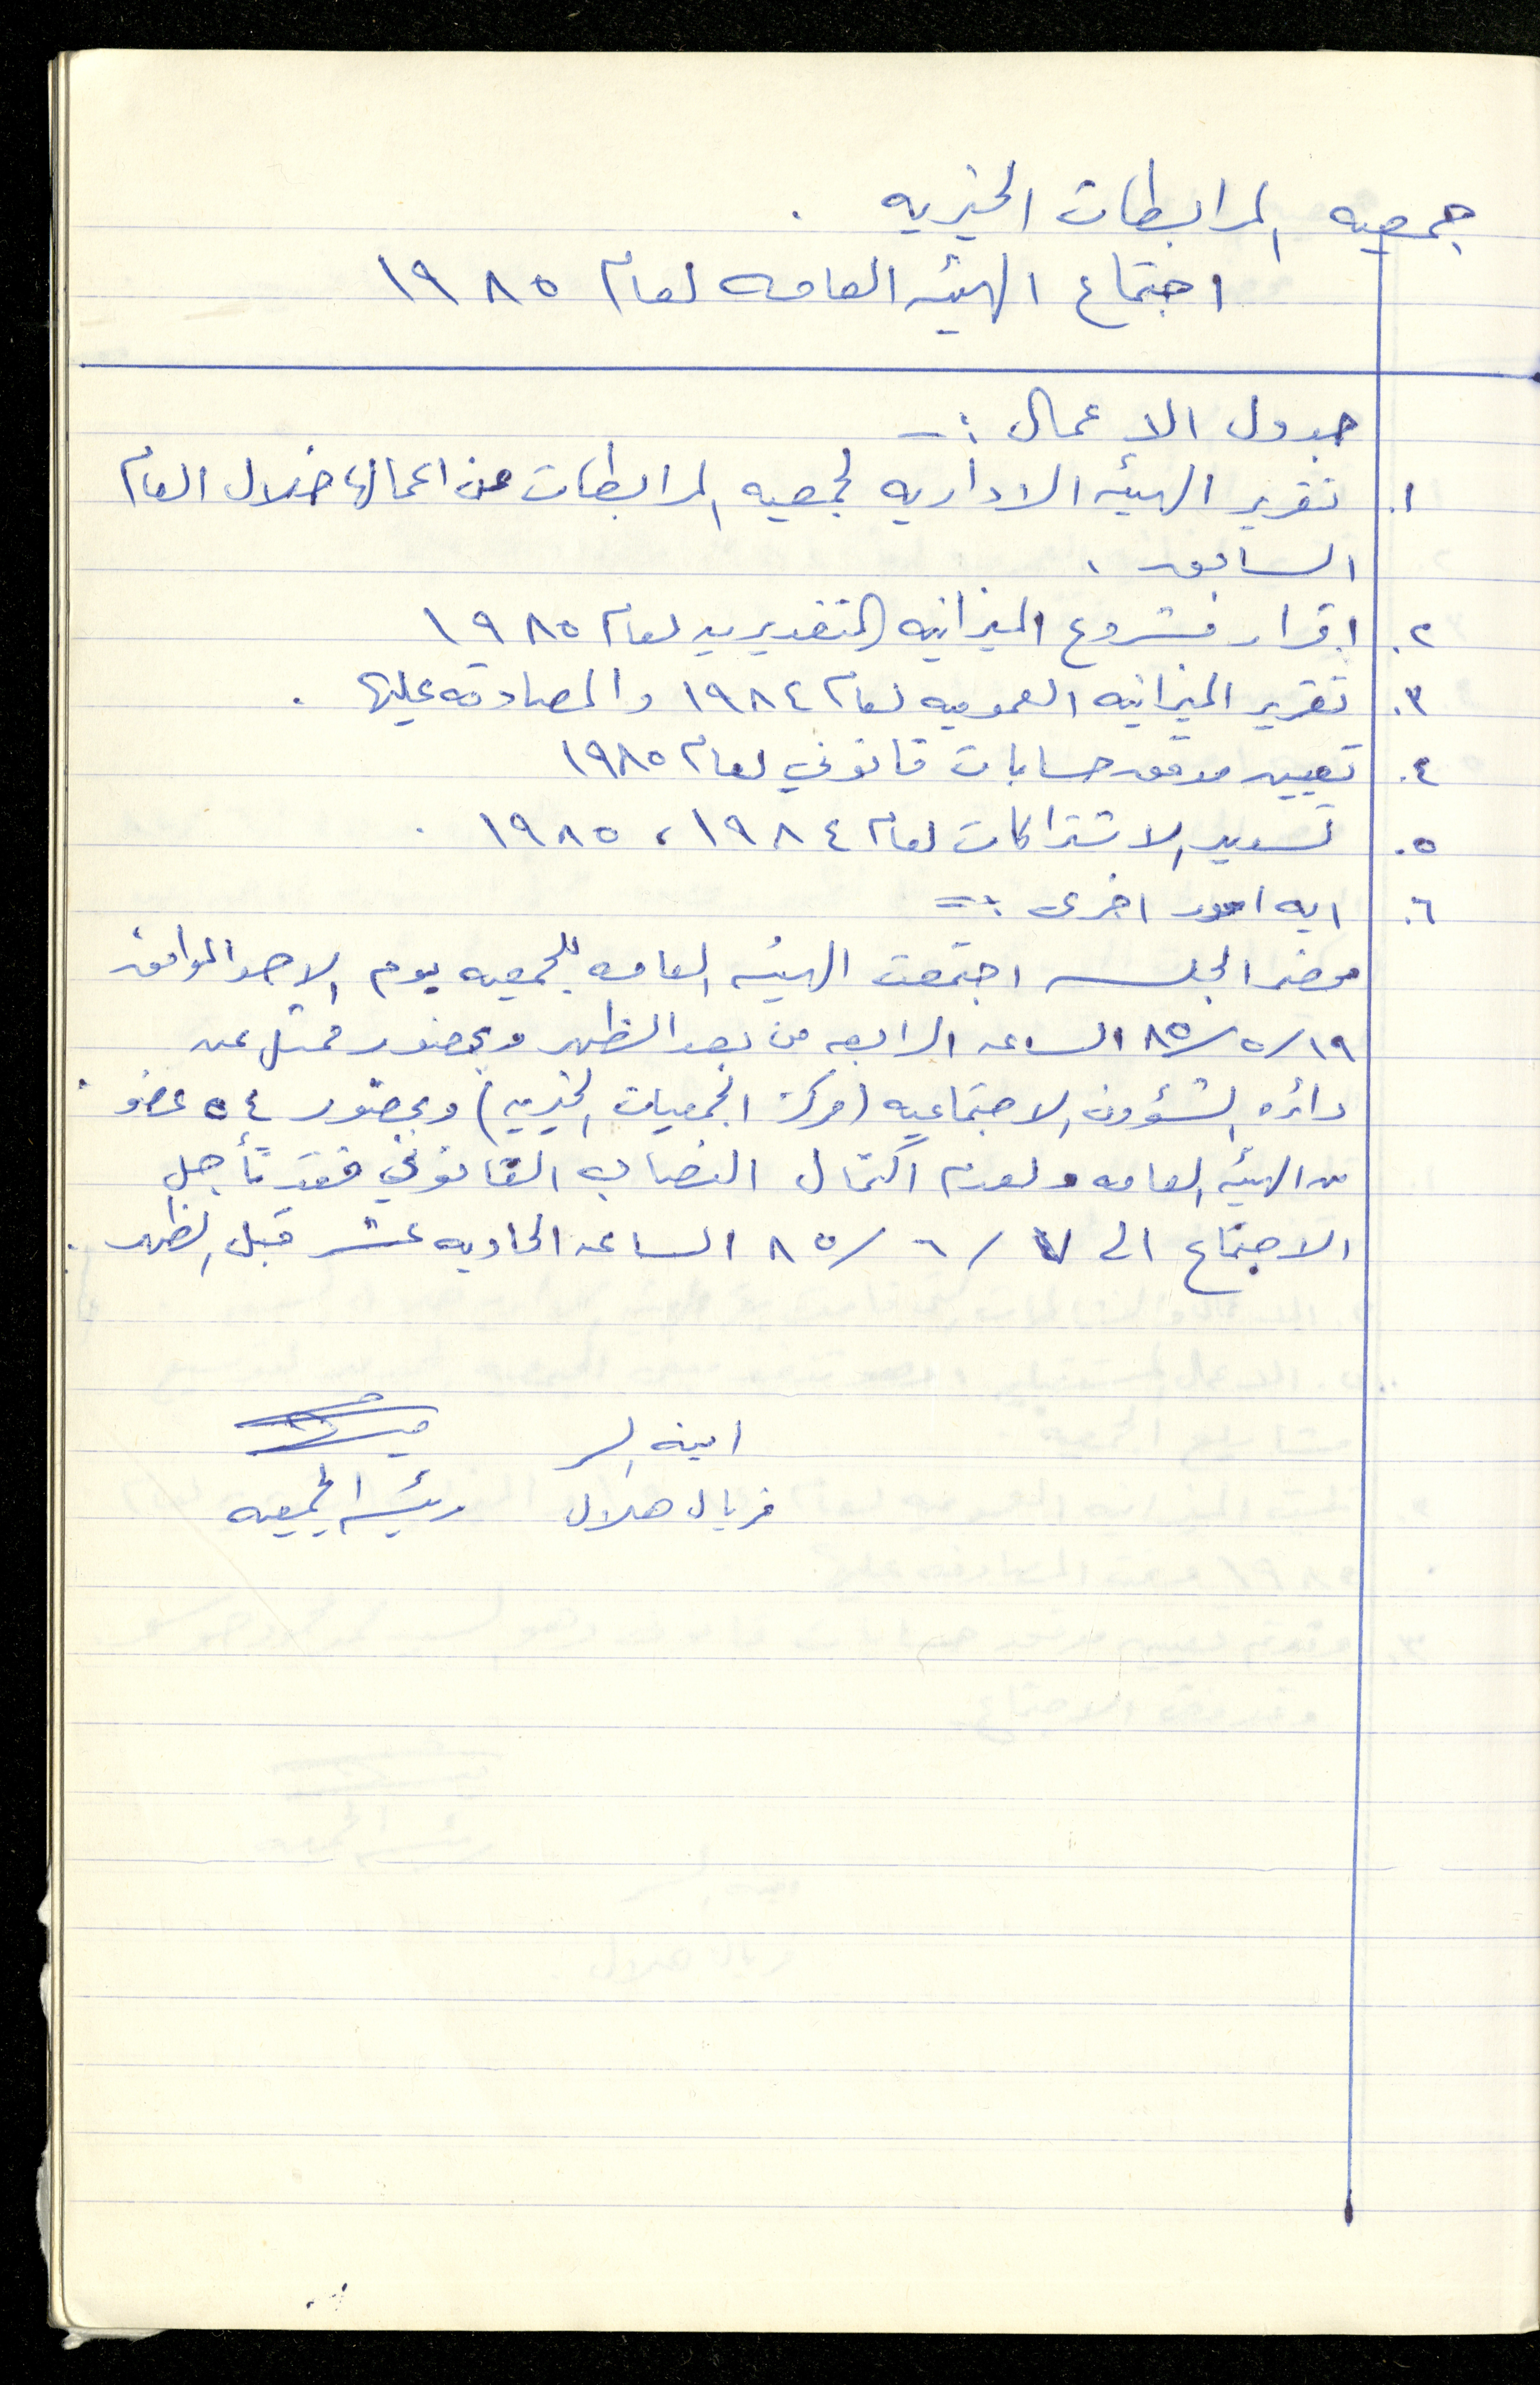 جمعيه المرابطات الخيريه .
اجتماع الهيئه العامه لعام ١٩٨٥
جدول الاعمال :-
١. تقرير الهيئه الاداريه لجمعيه المرابطات عن اعمالها خلال العام
السابق .
٢. اقرار مشروع الميزانيه التقديريه لعام ١٩٨٥
٣. تقرير الميزانيه العموميه لعام ١٩٨٤ والمصادقه عليها .
٤. تعيين مدقق حسابات قانوني لعام ١٩٨٥
٥. تسديد الاشتراكات لعام ١٩٨٤ ، ١٩٨٥ .
٦. ايه امور اخرى :=
محضر الجلسه اجتمعت الهيئه العامه للجمعيه يوم الاحد الموافق
١٩/٥/٨٥ الساعه الرابعه من بعد الظهر وبحضور ممثل عن
دائره الشؤون الاجتماعيه (مركز الجمعيات الخيريه) وبحضور ٥٤ عضو
من الهيئه العامه ولعدم اكتمال النصاب القانوني فقد تأجل
الاجتماع الى ٧/٦/٨٥ الساعه الحاديه عشر قبل الظهر .
امينه السر
فريال هلال رئيسه الجمعيه